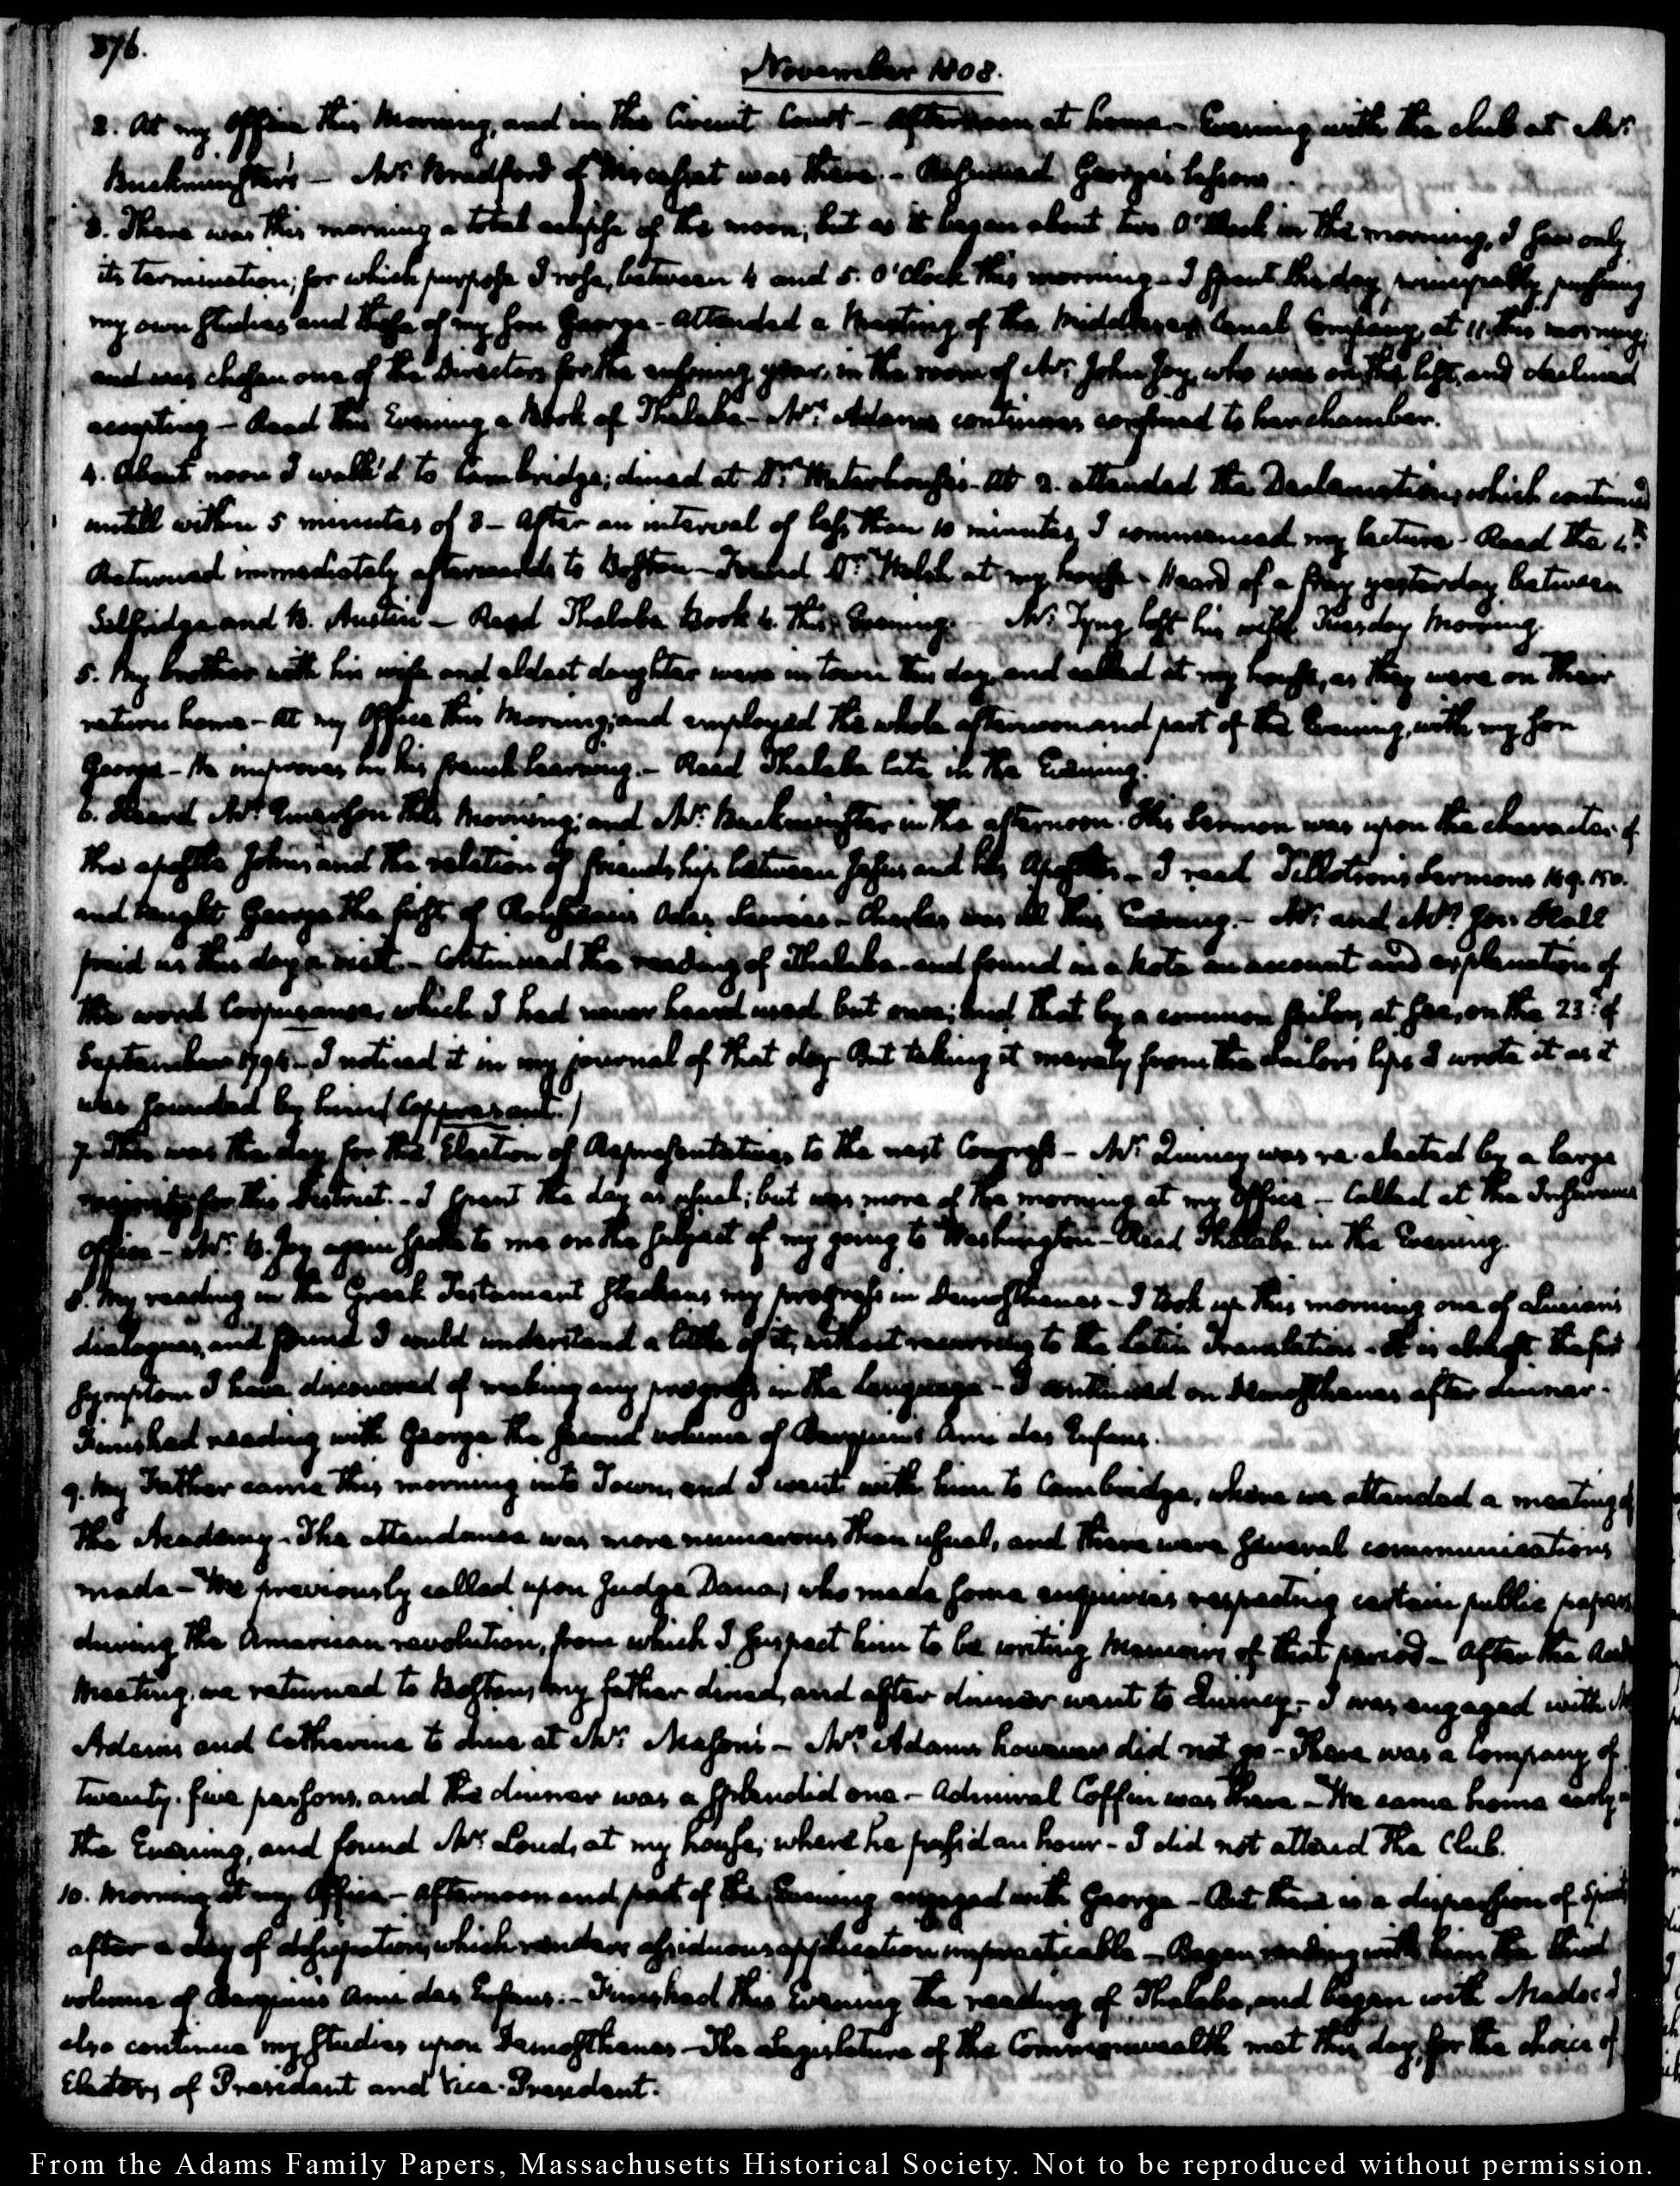 376.
November 1808.
2. At my Office this Morning, and in the Circuit Court – Afternoon at home – Evening with the club at Mr.
Buckminster's – Mr. Bradford of Wiscasset was there. – Resumed George's lessons.
3. There was this morning a total eclipse of the moon; but as it began about two O'Clock in the morning, I saw only
its termination; for which purpose I rose, between 4 and 5. O'Clock this morning – I spent the day, principally pursuing
my own studies and those of my son George – attended a Meeting of the Middlesex Canal Company, at 11. this morning;
and was chosen one of the Directors for the ensuing year, in the room of Mr. John Joy, who was on the list, and declined
accepting – Read this Evening a Book of Thalaba – Mrs. Adams continues confined to her chamber.
4. About noon I walk'd to Cambridge; dined at Dr. Waterhouse's. At 2. attended the Declamations, which continued
untill within 5 minutes of 3 – After an interval of less than 10 minutes, I commenced my lecture – Read the
Returned immediately afterwards to Boston – Found Dr. Welsh at my house – Heard of a fray yesterday between
Selfridge and B. Austin – Read Thalaba Book 6. this Evening. – Mr. Tyng lost his wife Tuesday Morning.
5. My brother with his wife and eldest daughter were in town this day, and called at my house, as they were on their
return home – At my Office this Morning; and employed the whole afternoon and part of the Evening, with my son
George – He improves in his french learning. – Read Thalaba late in the Evening.
6. Heard Mr. Emerson this Morning; and Mr. Buckminster in the afternoon. His Sermon was upon the character of
the apostle John; and the relation of friendship between Jesus and his Apostles – I read Tillotson's Sermons 149. 150.
and taught George the first of – Charles was ill this Evening. – Mr. and Mrs. Jos: Hall
paid us this day a visit. – Continued the reading of Thalaba – and found in a Note an account and explanation of
the word Corpusanse, which I had never heard used but once; and that by a common sailor, at sea, on the 23d. of
September 1794 – I noticed it in my journal of that day – But taking it merely from the sailor's lips I wrote it as it
was sounded by him (Copperzant.)
7. This was the day for the Election of Representatives to the next Congress – Mr. Quincy was re-elected by a large
majority for this District. – I spent the day as usual; but was more of the morning at my Office – Called at the Insurance
Office – Mr. B. Joy again spoke to me on the subject of my going to Washington – Read Thalaba in the Evening.
8. My reading in the Greek Testament slackens my progress in Demosthenes – I took up this morning one of Lucian's
dialogues, and found I could understand a little of it, without recurring to the Latin Translation – It is almost the first
symptom I have discovered of making any progress in the language – I continued on Demosthenes after dinner.
Finished reading with George the second volume of Berquin's Ami des Enfans.
9. My Father came this morning into Town, and I went with him to Cambridge, where we attended a meeting of
the Academy – The attendance was more numerous than usual, and there were several communications
made – We previously called upon Judge Dana, who made some enquiries respecting certain public papers
during the American revolution, from which I suspect him to be writing Memoirs of that period – After the
Meeting, we returned to Boston, my father dined, and after dinner went to Quincy – I was engaged with
Adams and Catherine to dine at Mr. Mason's – Mrs. Adams however did not go – There was a company of
twenty-five persons, and the dinner was a splendid one – Admiral Coffin was there – We came home early
the Evening, and found Mr. Loud, at my house; where he pass'd an hour – I did not attend the Club.
10. Morning at my Office – afternoon and part of the Evening engaged with George – But there is a dispersion of
after a day of dissipation, which renders assiduous application impracticable – Began reading with him the third
volume of Berquin's Ami des Enfans. – Finished this Evening the reading of Thalaba, and began with Madoc I
also continue my studies upon Demosthenes – The Legislature of the Commonwealth met this day, for the choice of
Electors of President and Vice-President.
From the Adams Family Papers, Massachusetts Historical Society. Not to be reproduced without permission.